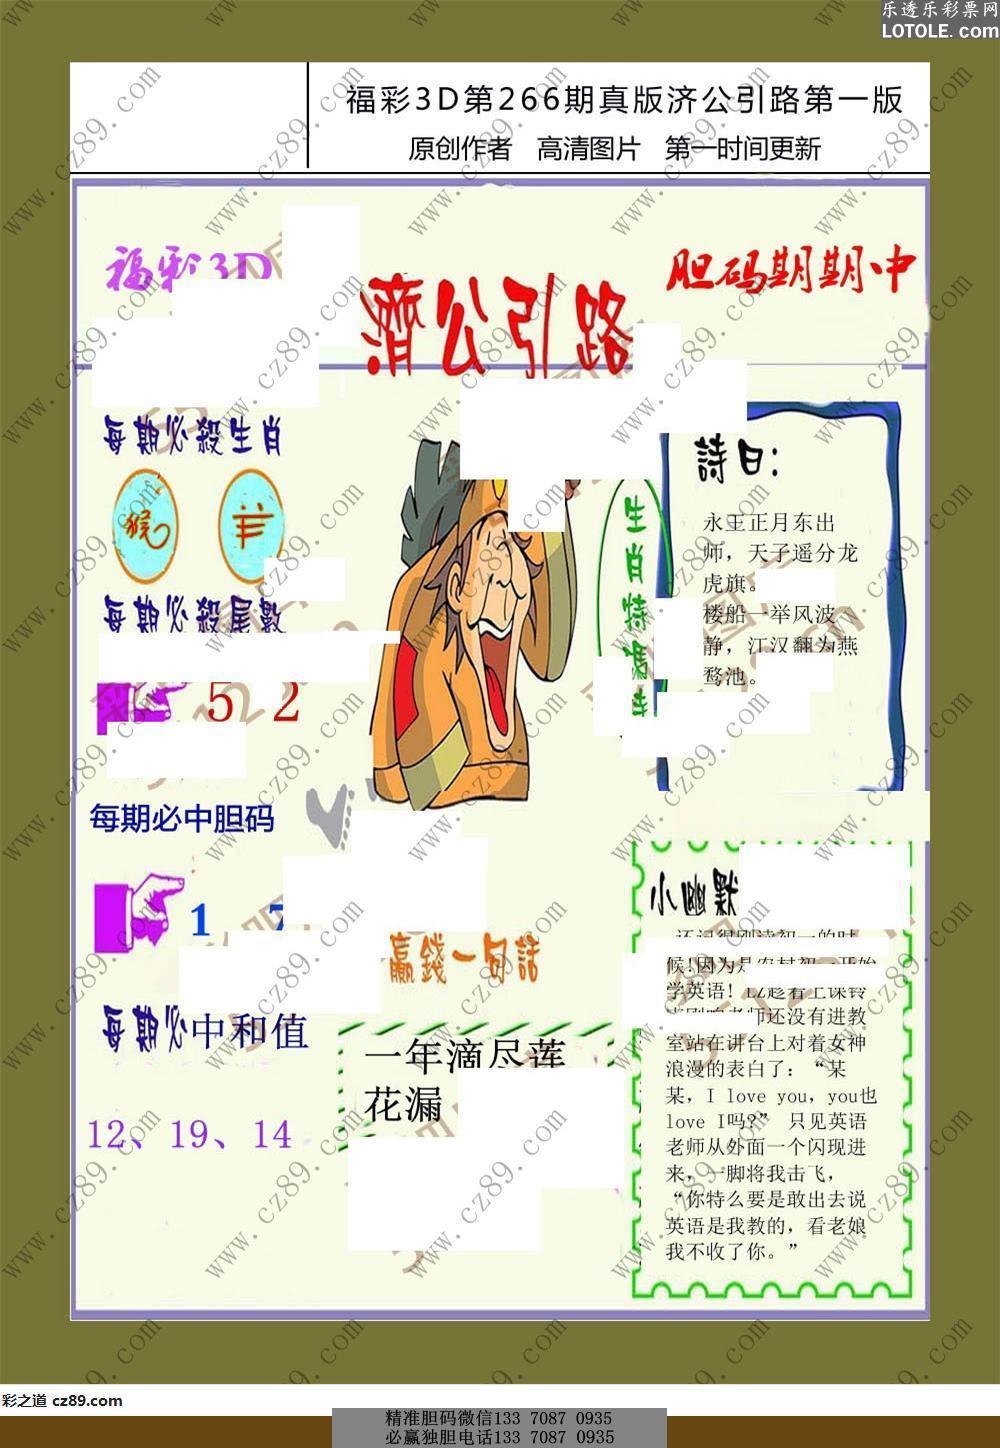 乐透乐彩票网
LOTOLE.com
福彩3D第266期真版济公引路第一版
原创作者 高清图片 第一时间更新
福彩3D
濟公引路
胆码期期中
每期必殺生肖
猴
羊
每期必殺尾數
5 2
每期必中胆码
1 7
每期必中和值
12、19、14
生肖特碼
詩曰：
永王正月东出
师，天子遥分龙
虎旗。
楼船一举风波
静，江汉翻为燕
鹜池。
赢錢一句話
一年滴尽莲
花漏
小幽默
还记得刚读初一的时
候!因为是农村初一开始
学英语! 趁着上课铃
师还没有进教
室站在讲台上对着女神
浪漫的表白了：“某
某，I love you，you也
love I吗?” 只见英语
老师从外面一个闪现进
来，一脚将我击飞，
“你特么要是敢出去说
英语是我教的，看老娘
我不收了你。”
www.cz89.com
彩之道 cz89.com
精准胆码微信133 7087 0935
必赢独胆电话133 7087 0935